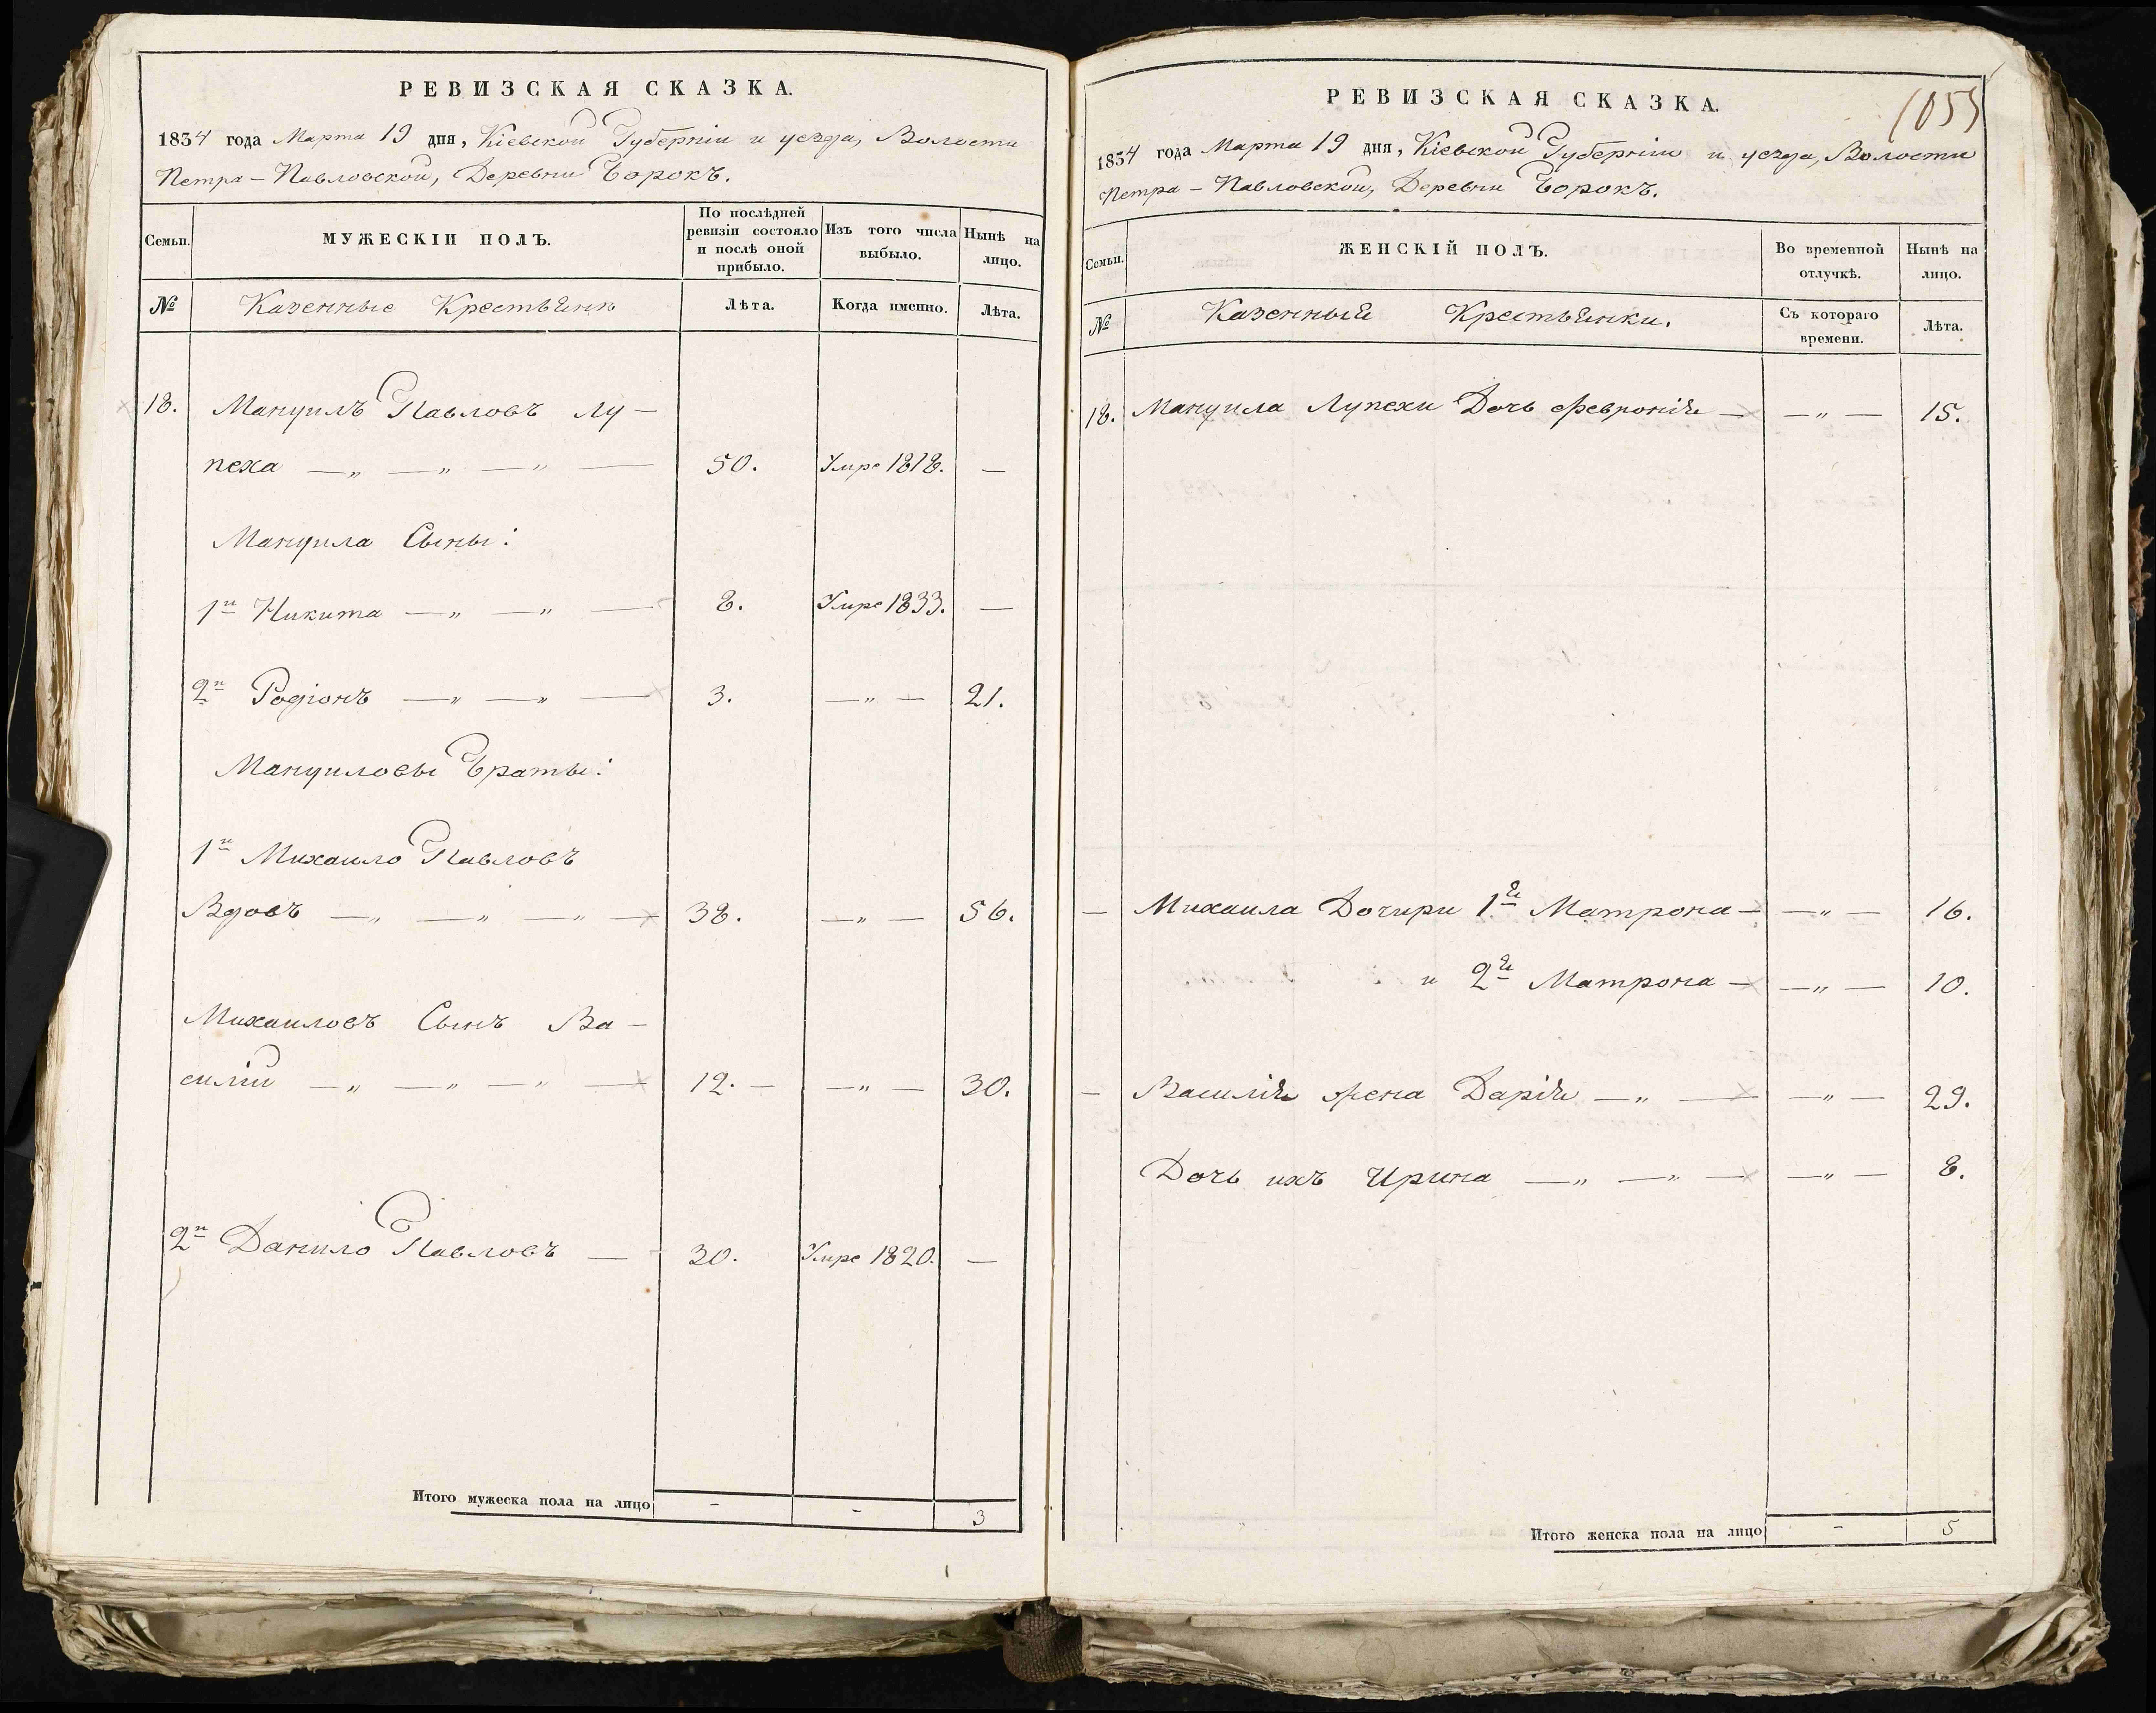 РЕВИЗСКАЯ СКАЗКА.
1834 года Марта 19 дня, Кіевской Губерніи и уезда, Волости
Петра-Павловской, Деревни Борокъ.
Семьи.
МУЖЕСКІЙ ПОЛЪ.
По послѣдней
ревизіи состояло
и послѣ оной
прибыло.
Изъ того числа
выбыло.
Нынѣ на
лицо.
№
Казенные Крестьяне
Лѣта.
Когда именно.
Лѣта.
18. Мануилъ Павловъ Лу-
пеха — „ — „ — „ — 50. Умре 1818. —
Мануила Сыны:
1й Никита — „ — „ — 8. Умре 1833. —
2й Родіонъ — „ — „ — 3. — „ — 21.
Мануиловы Браты:
1й Михаило Павловъ
Вдовъ — „ — „ — „ — 38. — „ — 56.
Михаиловъ Сынъ Ва-
силій — „ — „ — „ — 12. — — „ — 30.
2й Данило Павловъ — 30. Умре 1820. —
Итого мужеска пола на лицо - - 3
РЕВИЗСКАЯ СКАЗКА.
105
1834 года Марта 19 дня, Кіевской Губерніи и уезда, Волости
Петра-Павловской, Деревни Борокъ.
Семьи.
ЖЕНСКІЙ ПОЛЪ.
Во временной
отлучкѣ.
Нынѣ на
лицо.
№
Казенныя Крестьянки.
Съ котораго
времени.
Лѣта.
18. Мануила Лупехи Дочь Февронія — — „ — 15.
— Михаила Дочири 1я Матрона — — „ — 16.
и 2я Матрона — — „ — 10.
— Василія жена Дарія — „ — — „ — 29.
Дочь ихъ Ирина — „ — „ — — „ — 8.
Итого женска пола на лицо - 5